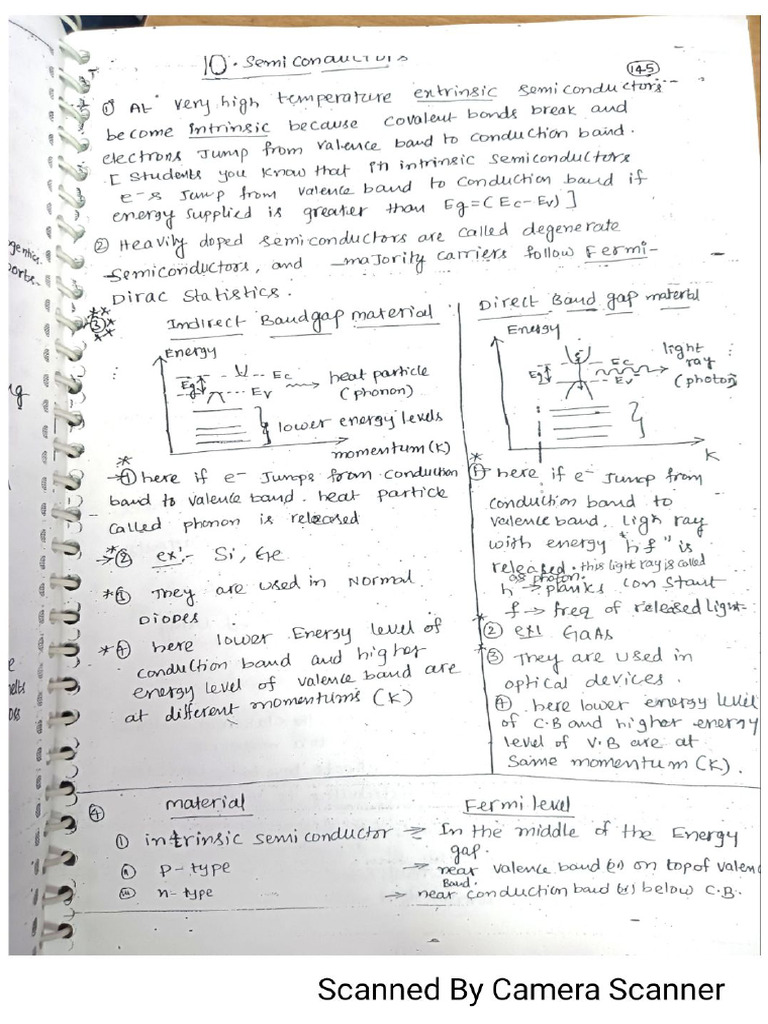 10. Semiconductors
145
① At very high temperature extrinsic semiconductors
become intrinsic because covalent bonds break and
electrons Jump from valence band to conduction band.
[ Students you know that in intrinsic semiconductors
e-s Jump from valence band to conduction band if
energy supplied is greater than Eg=(Ec-Ev) ]
② Heavily doped semiconductors are called degenerate
semiconductors, and majority carriers follow Fermi-
Dirac Statistics.
③ Indirect Bandgap material
Energy
Eg
Ec
Ev
heat particle
(phonon)
lower energy levels
momentum(K)
① here if e- Jumps from conduction
band to valence band. heat particle
called phonon is released
② ex:- Si, Ge
They are used in Normal
Diodes
④ here lower Energy level of
conduction band and higher
energy level of valence band are
at different momentums (K)
Direct Band gap material
Energy
Eg
Ec
Ev
light
ray
(photon)
K
① here if e- Jump from
conduction band to
valence band. Ligh ray
with energy "hf" is
released. this light ray is called
as photon.
h → planks constant
f → freq of released light
② ex: GaAs
③ They are used in
optical devices.
④ here lower energy level
of C.B and higher energy
level of V.B are at
same momentum (K).
④ material Fermi level
① intrinsic semiconductor → In the middle of the Energy
gap.
ⓘⓘ P-type → near valence band (or) on top of valen
Band.
ⓘⓘⓘ n-type → near conduction band (or) below C.B.
Scanned By Camera Scanner